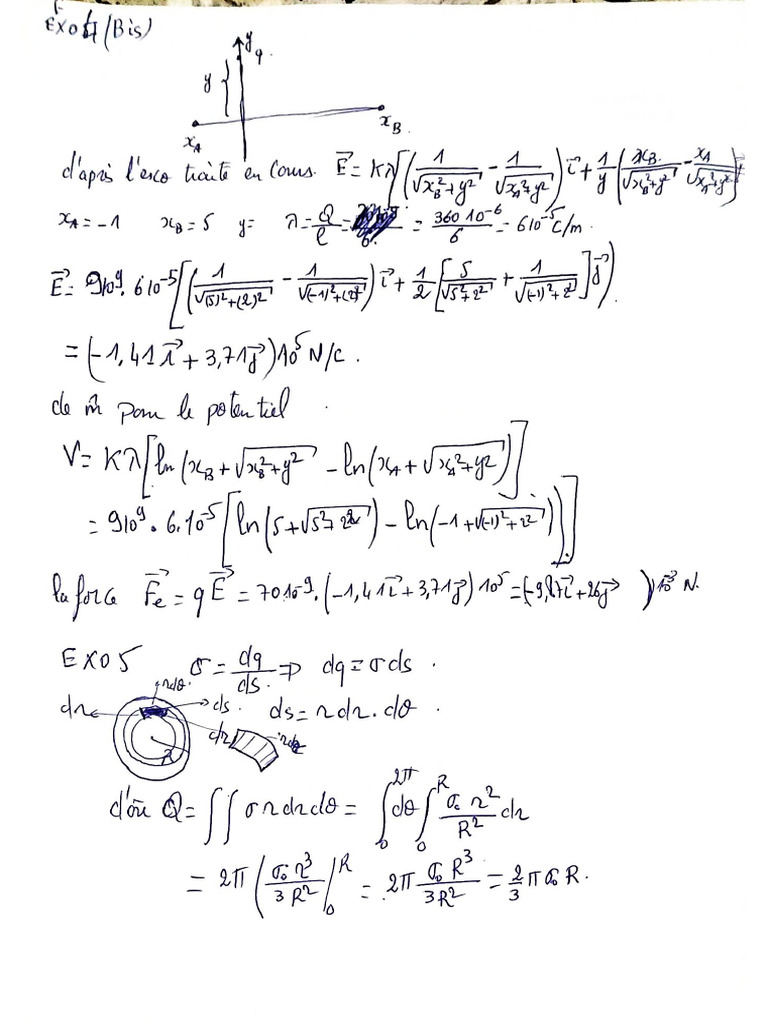 Exo 4 (Bis)
y
q
y
x_A
x_B
d'après l'exo traité en Cours. E⃗ = Kλ[(1/√(x_B²+y²) - 1/√(x_A²+y²)) i⃗ + 1/y (x_B/√(x_B²+y²) - x_A/√(x_A²+y²)) j⃗
x_A = -1 x_B = 5 y = λ = Q/l = = 360 10^-6/6 = 6 10^-5 C/m.
E⃗ = 9 10^9. 6 10^-5 [(1/√((5)²+(2)²) - 1/√((-1)²+(2)²)) i⃗ + 1/2 [5/√(5²+2²) + 1/√((-1)²+2²)] j⃗)
= (-1,41 i⃗ + 3,71 j⃗) 10^5 N/C.
de m̂ pour le potentiel
V = Kλ[ln(x_B + √(x_B²+y²) - ln(x_A + √(x_A²+y²))]
= 9 10^9 . 6.10^-5 [ln(5+√(5²+2²)) - ln(-1+√((-1)²+2²))].
la force F⃗e = q E⃗ = 70.10^-9.(-1,41 i⃗ + 3,71 j⃗) 10^5 = (-9,87 i⃗ + 26 j⃗ ) 10^-3 N.
EXO 5 σ = dq/ds ⇒ dq = σ ds.
rdθ
dr ds. ds = r dr. dθ.
dr
R
d'où Q = ∫∫ σ r dr dθ = ∫₀^2π dθ ∫₀^R σ₀ r²/R² dr
= 2π (σ₀ r³/3 R² |₀^R = 2π σ₀ R³/3R² = 2/3 π σ₀ R.